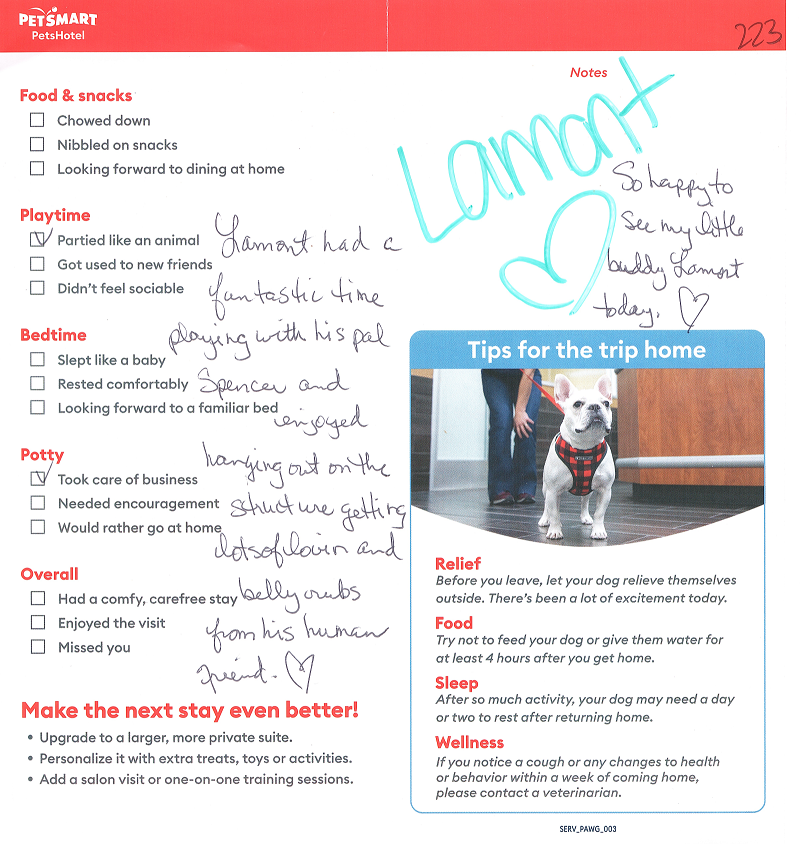 PETSMART
PetsHotel
223
Notes
Lamont
So happy to
see my little
buddy Lamont
today. ♡
Food & snacks
☐ Chowed down
☐ Nibbled on snacks
☐ Looking forward to dining at home
Playtime
☑ Partied like an animal
☐ Got used to new friends
☐ Didn't feel sociable
Bedtime
☐ Slept like a baby
☐ Rested comfortably
☐ Looking forward to a familiar bed
Potty
☑ Took care of business
☐ Needed encouragement
☐ Would rather go at home
Overall
☐ Had a comfy, carefree stay
☐ Enjoyed the visit
☐ Missed you
Lamont had a
funtastic time
playing with his pal
Spencer and
enjoyed
hanging out on the
structure getting
lots of lovin and
belly rubs
from his human
friend. ♡
Make the next stay even better!
• Upgrade to a larger, more private suite.
• Personalize it with extra treats, toys or activities.
• Add a salon visit or one-on-one training sessions.
Tips for the trip home
Relief
Before you leave, let your dog relieve themselves
outside. There's been a lot of excitement today.
Food
Try not to feed your dog or give them water for
at least 4 hours after you get home.
Sleep
After so much activity, your dog may need a day
or two to rest after returning home.
Wellness
If you notice a cough or any changes to health
or behavior within a week of coming home,
please contact a veterinarian.
SERV_PAWG_003